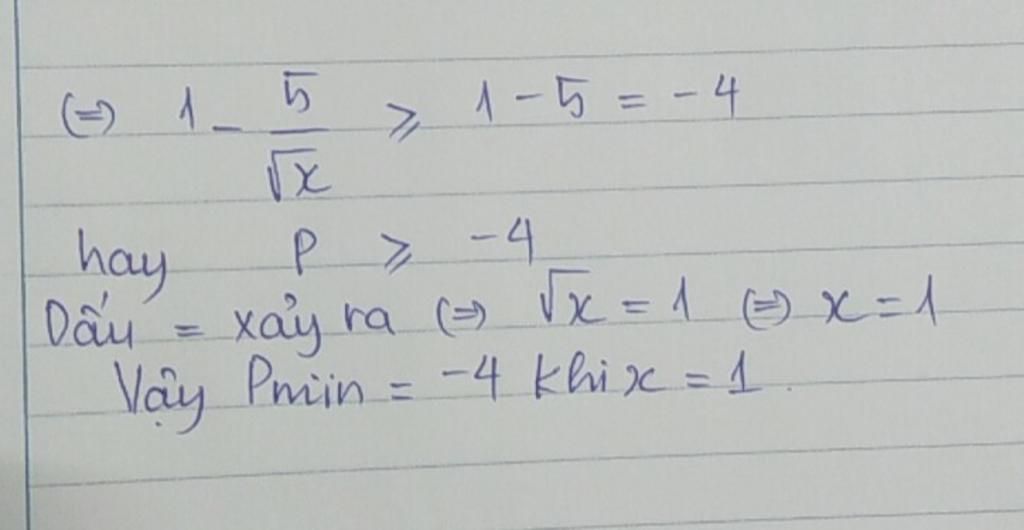 (=) 1 - 5/√x ⩾ 1 - 5 = -4
hay P ⩾ -4
Dấu = xảy ra (=) √x = 1 (=) x = 1
Vậy Pmin = -4 khi x = 1.